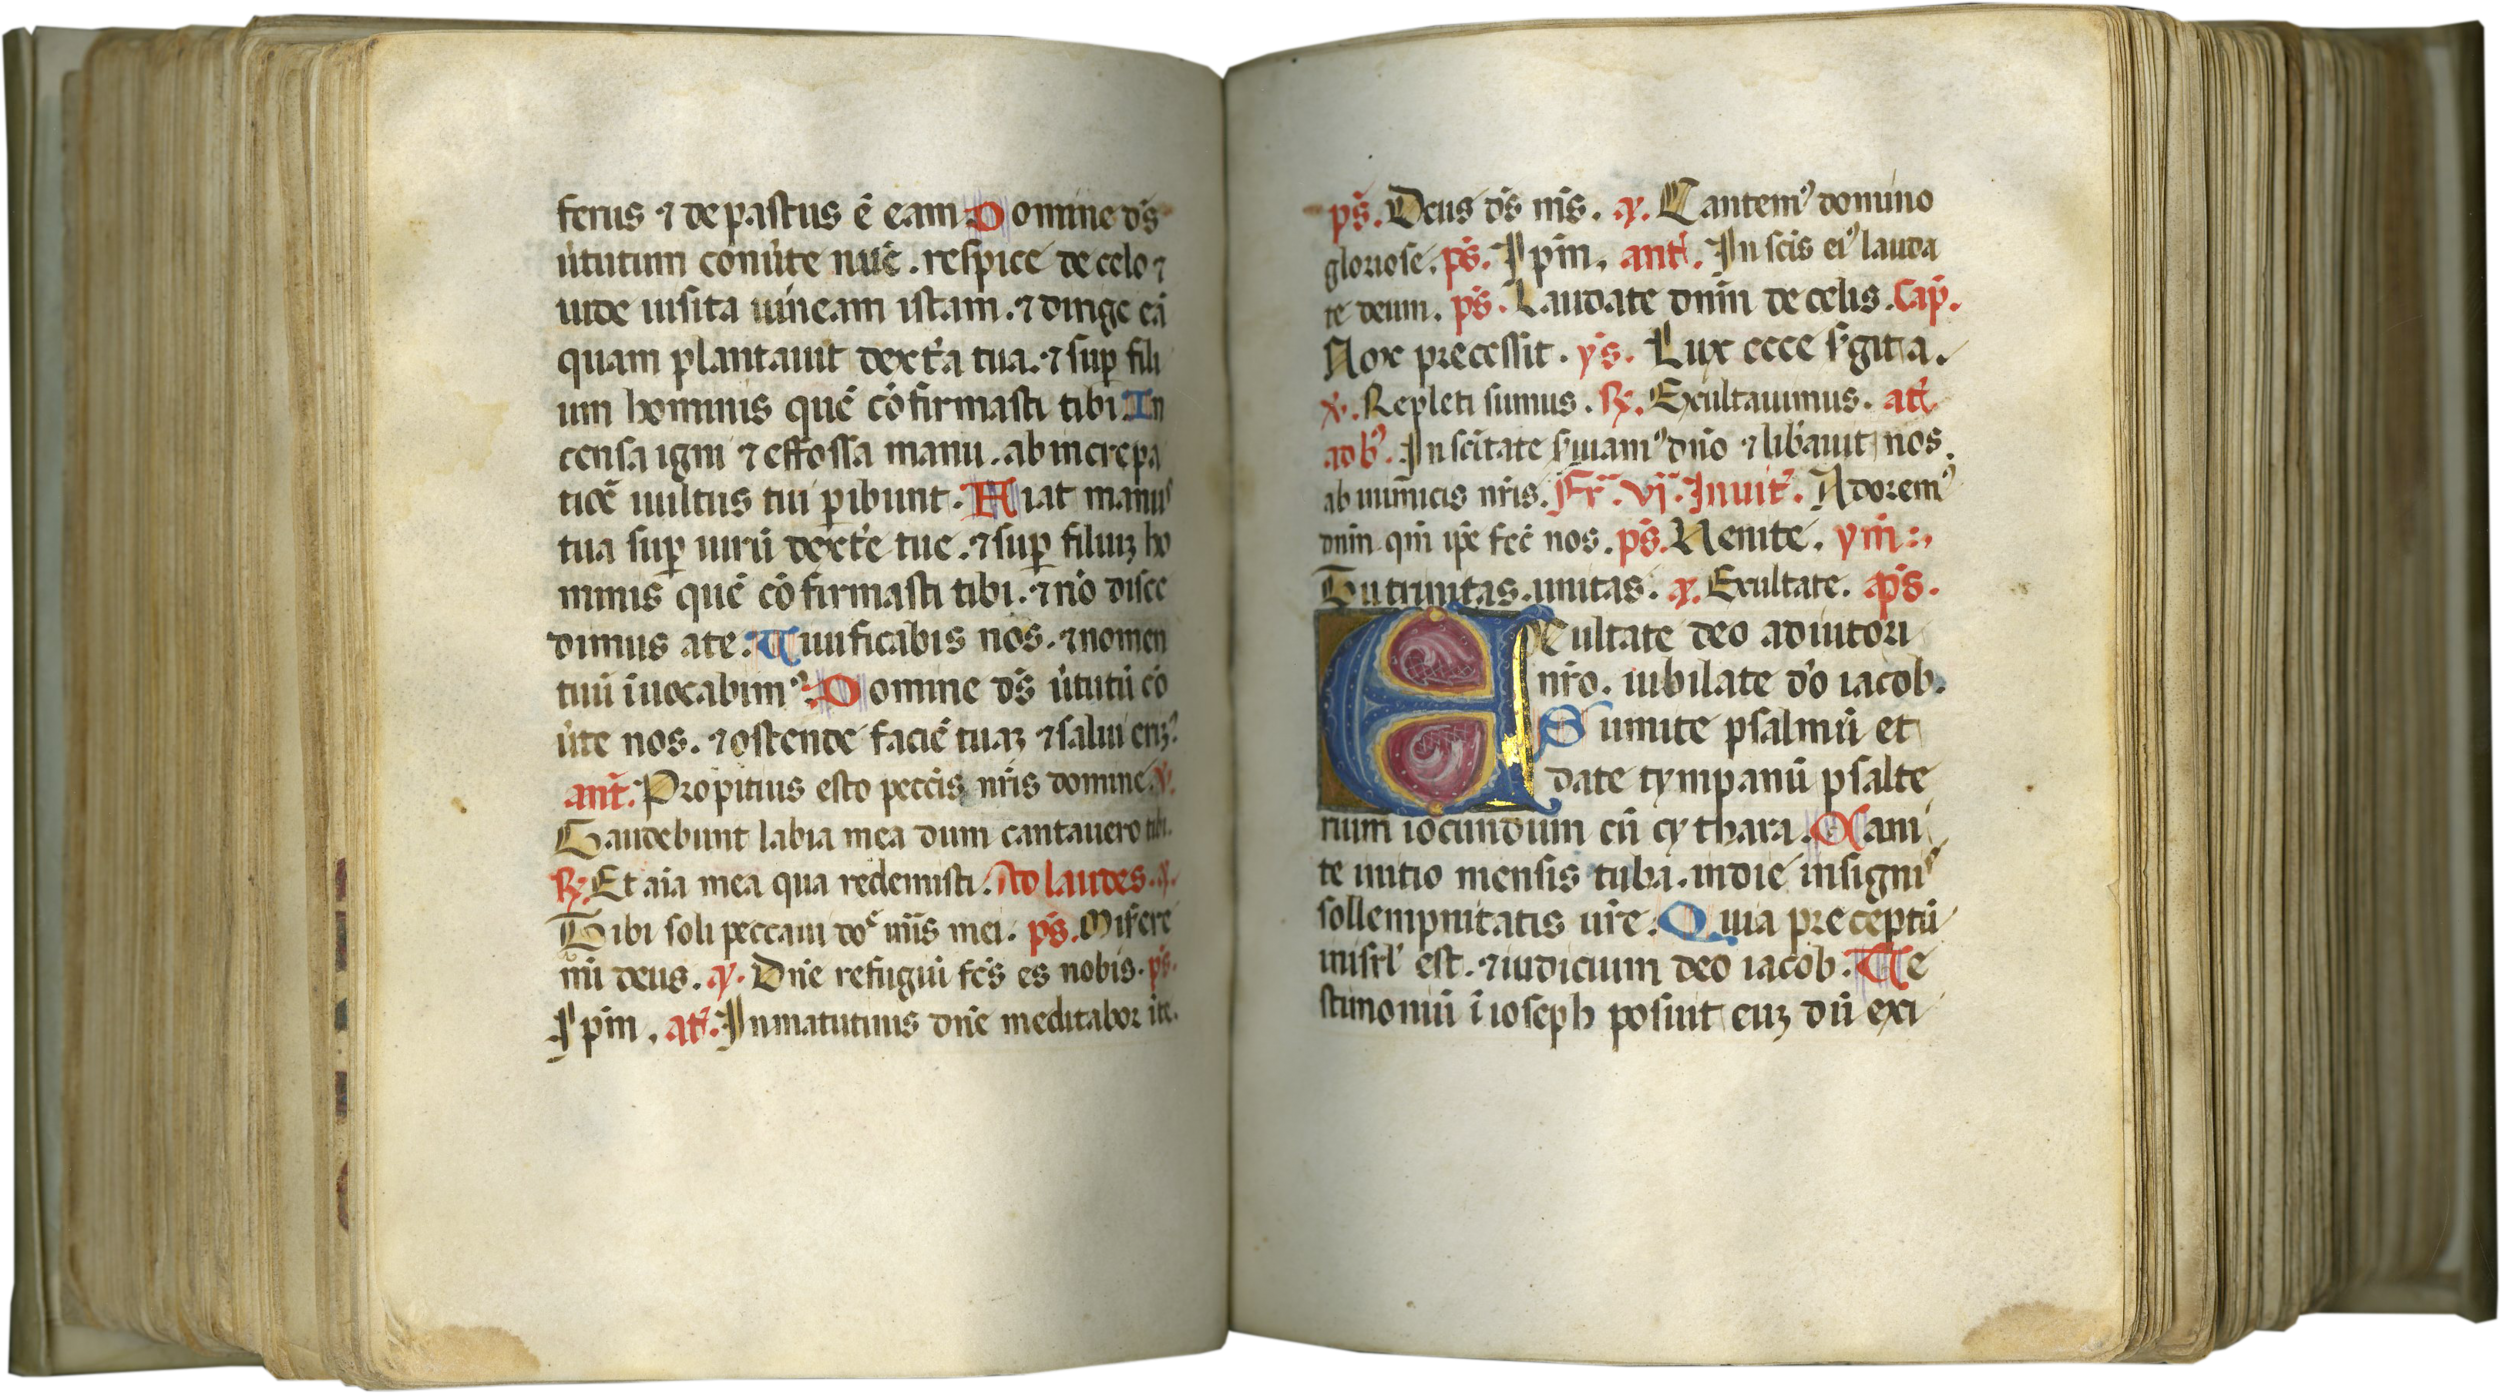 ferus ⁊ depastus ē eam Domine ds̄
ùtutum conùte nūc. respice de celo ⁊
uide uisita uineam istam. ⁊ dirige eā
quam plantauit dext̾a tua. ⁊ suꝑ fili
um hominis quē cōfirmasti tibi In
censa igni ⁊ effossa manu. ab increpa
tiōe uultus tui ꝑibunt. Fiat manus
tua suꝑ uirū dext̾e tue. ⁊ suꝑ filiuꝫ ho
minis quē cōfirmasti tibi. ⁊ nō disce
dimus ate. Uiuificabis nos. ⁊ nomen
tuū īuocabimꝰ. Domine ds̄ ùtutū cō
ùte nos. ⁊ ostende faciē tuaꝫ ⁊ salui erimꝰ
ant̄. Propitius esto peccīs nr̄is domine. ꝟ.
Gaudebunt labia mea dum cantauero tibi.
℞. Et aīa mea qua redemisti. Ad laudes. a.
Tibi soli peccaui dn̄e miīs mei. ps̄. Misere
mī deus. a. Dn̄e refugiū fcs̄ es nobis. ps̄.
Ipm̄. at̄. In matutinis dn̄e meditabor ite.
ps̄. Deus ds̄ ms̄. a. Cantemꝰ domino
gloriose. ps̄. Ipm̄. ant̄. In scīs eiꝰ lauda
te deum. ps̄. Laudate dnm̄ de celis. Cap̄.
Nox precessit. ys̄. Lux ecce s̾git ia.
ꝟ. Repleti sumus. ℞. Exultauimus. at̄
ad b̾. In scītate s̾uiamꝰ dn̄o ⁊ lib̾auit nos.
ab inimicis nr̄is. Fr̄. vj. Inuit̄. Adoremꝰ
dnm̄ qm̄ ip̄e fec̄ nos. ps̄. Venite. ym̄
Tu trinitas unitas. a. Exultate. ps̄.
Exultate deo adiutori
nr̄o. iubilate dō iacob.
Sumite psalmū et
date tympanū psalte
rium iocundum cū cythara. Cani
te initio mensis tuba. in die insignis
sollempnitatis ur̄e. Quia preceptū
in isrl̾ est. ⁊ iudicium deo iacob. Te
stimoniū ī ioseph posuit euꝫ dū exi